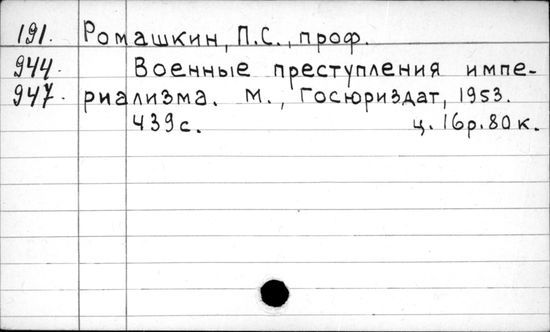 191. Ромашкин, П.С., проф.
944. Военные преступления импе-
947. риализма. М., Госюриздат, 1953.
439с. ц. 16р.80к.